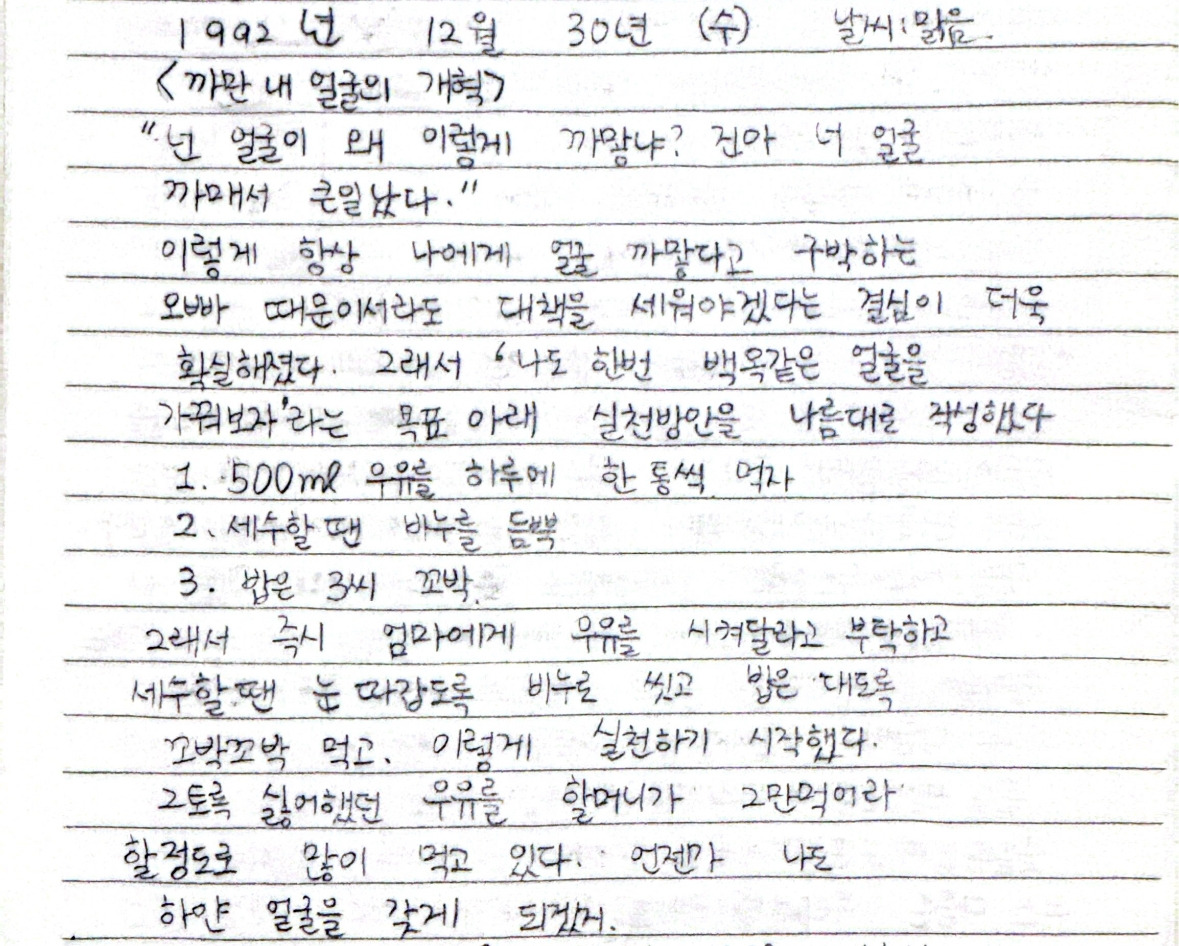 1992년 12월 30년 (수) 날씨:맑음
<까만 내 얼굴의 개혁>
"넌 얼굴이 왜 이렇게 까맣냐? 진아 너 얼굴
까매서 큰일났다."
이렇게 항상 나에게 얼굴 까맣다고 구박하는
오빠 때문이서라도 대책을 세워야겠다는 결심이 더욱
확실해졌다. 그래서 '나도 한번 백옥같은 얼굴을
가꿔보자'라는 목표 아래 실천방안을 나름대로 작성했다
1. 500ml 우유를 하루에 한 통씩 먹자
2. 세수할 땐 비누를 듬뿍
3. 밥은 3씨 꼬박.
그래서 즉시 엄마에게 우유를 시켜달라고 부탁하고
세수할 땐 눈 따갑도록 비누로 씻고 밥은 대도록
꼬박꼬박 먹고. 이렇게 실천하기 시작했다.
그토록 싫어했던 우유를 할머니가 그만먹어라
할 정도로 많이 먹고 있다. 언젠가 나도
하얀 얼굴을 갖게 되겠지.